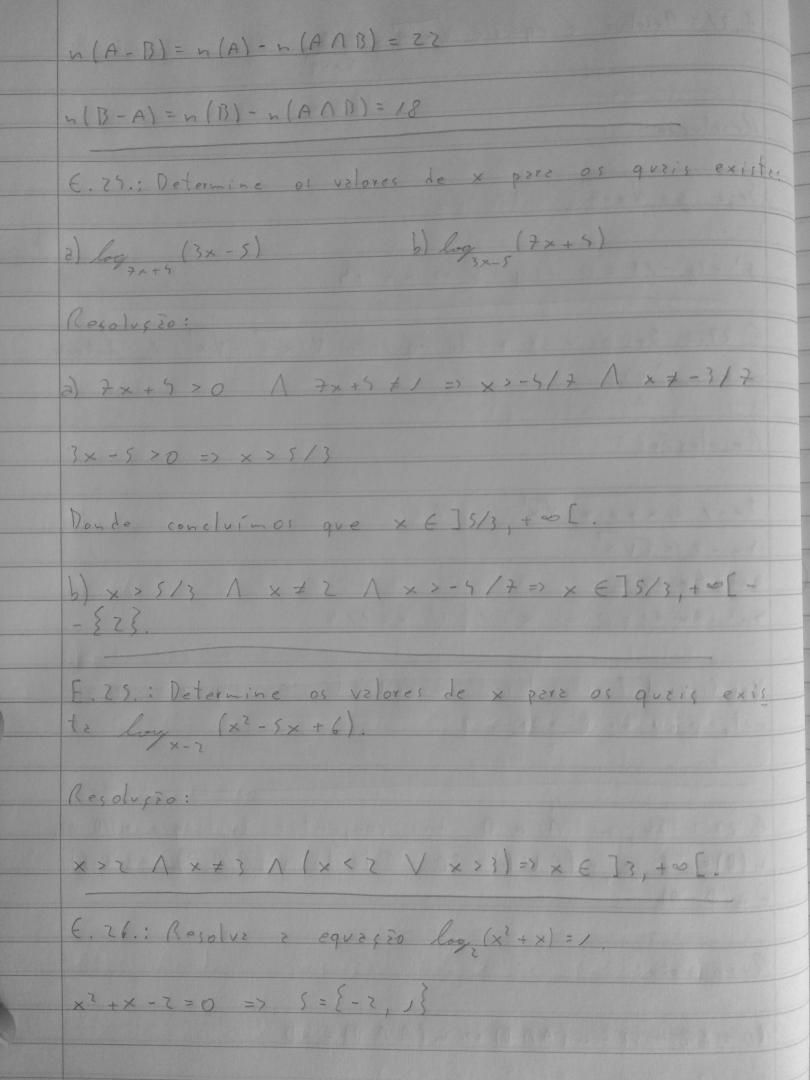 n(A-B) = n(A) - n(A∩B) = 22
n(B-A) = n(B) - n(A∩B) = 18
E.24.: Determine os valores de x para os quais existe:
a) log₇ₓ₊₄ (3x-5) b) log₃ₓ₋₅ (7x+4)
Resolução:
a) 7x+4>0 ∧ 7x+4≠1 => x>-4/7 ∧ x≠-3/7
3x-5>0 => x>5/3
Donde concluímos que x ∈ ]5/3, +∞[.
b) x>5/3 ∧ x≠2 ∧ x>-4/7 => x ∈ ]5/3, +∞[ -
- {2}.
E.25.: Determine os valores de x para os quais exis
ta logₓ₋₂ (x²-5x+6).
Resolução:
x>2 ∧ x≠3 ∧ (x<2 ∨ x>3) => x ∈ ]3, +∞[.
E.26.: Resolva a equação log₂(x²+x)=1.
x²+x-2=0 => S={-2, 1}